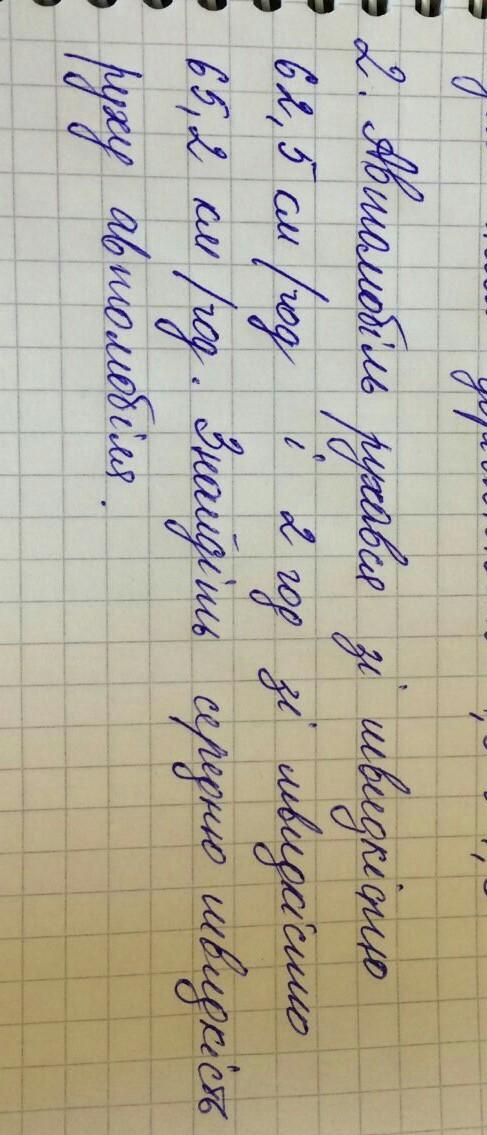 2. Автомобіль рухався зі швидкістю
62,5 км/год і 2 год зі швидкістю
65,2 км/год. Знайдіть середню швидкість
руху автомобіля.